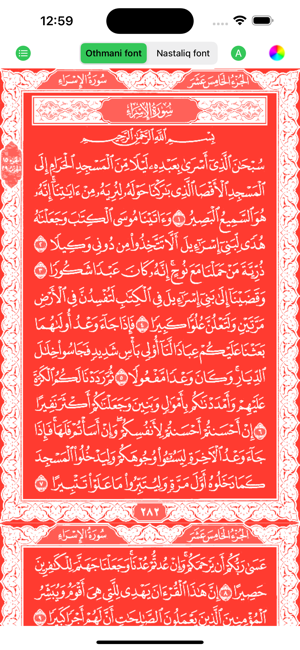 12:59
Othmani font
Nastaliq font
A
سُورَةُ الإِسْرَاءِ
الجُزْءُ الخَامِسَ عَشَرَ
سُورَةُ الإِسْرَاءِ
بِسْمِ اللَّهِ الرَّحْمَٰنِ الرَّحِيمِ
سُبْحَٰنَ الَّذِي أَسْرَىٰ بِعَبْدِهِ لَيْلًا مِّنَ الْمَسْجِدِ الْحَرَامِ إِلَى
الْمَسْجِدِ الْأَقْصَا الَّذِي بَٰرَكْنَا حَوْلَهُ لِنُرِيَهُ مِنْ ءَايَٰتِنَا إِنَّهُ
هُوَ السَّمِيعُ الْبَصِيرُ ١ وَءَاتَيْنَا مُوسَى الْكِتَٰبَ وَجَعَلْنَٰهُ
هُدًى لِّبَنِي إِسْرَٰٓءِيلَ أَلَّا تَتَّخِذُوا مِن دُونِي وَكِيلًا ٢
ذُرِّيَّةَ مَنْ حَمَلْنَا مَعَ نُوحٍ إِنَّهُ كَانَ عَبْدًا شَكُورًا ٣
وَقَضَيْنَا إِلَىٰ بَنِي إِسْرَٰٓءِيلَ فِي الْكِتَٰبِ لَتُفْسِدُنَّ فِي الْأَرْضِ
مَرَّتَيْنِ وَلَتَعْلُنَّ عُلُوًّا كَبِيرًا ٤ فَإِذَا جَاءَ وَعْدُ أُولَىٰهُمَا
بَعَثْنَا عَلَيْكُمْ عِبَادًا لَّنَا أُولِي بَأْسٍ شَدِيدٍ فَجَاسُوا خِلَٰلَ
الدِّيَارِ وَكَانَ وَعْدًا مَّفْعُولًا ٥ ثُمَّ رَدَدْنَا لَكُمُ الْكَرَّةَ
عَلَيْهِمْ وَأَمْدَدْنَٰكُم بِأَمْوَٰلٍ وَبَنِينَ وَجَعَلْنَٰكُمْ أَكْثَرَ نَفِيرًا
٦ إِنْ أَحْسَنتُمْ أَحْسَنتُمْ لِأَنفُسِكُمْ وَإِنْ أَسَأْتُمْ فَلَهَا فَإِذَا
جَاءَ وَعْدُ الْءَاخِرَةِ لِيَسُـُٔوا وُجُوهَكُمْ وَلِيَدْخُلُوا الْمَسْجِدَ
كَمَا دَخَلُوهُ أَوَّلَ مَرَّةٍ وَلِيُتَبِّرُوا مَا عَلَوْا تَتْبِيرًا ٧
٢٨٢
سُورَةُ الإِسْرَاءِ
الجُزْءُ الخَامِسَ عَشَرَ
عَسَىٰ رَبُّكُمْ أَن يَرْحَمَكُمْ وَإِنْ عُدتُّمْ عُدْنَا وَجَعَلْنَا جَهَنَّمَ لِلْكَٰفِرِينَ
حَصِيرًا ٨ إِنَّ هَٰذَا الْقُرْءَانَ يَهْدِي لِلَّتِي هِيَ أَقْوَمُ وَيُبَشِّرُ
الْمُؤْمِنِينَ الَّذِينَ يَعْمَلُونَ الصَّٰلِحَٰتِ أَنَّ لَهُمْ أَجْرًا كَبِيرًا ٩